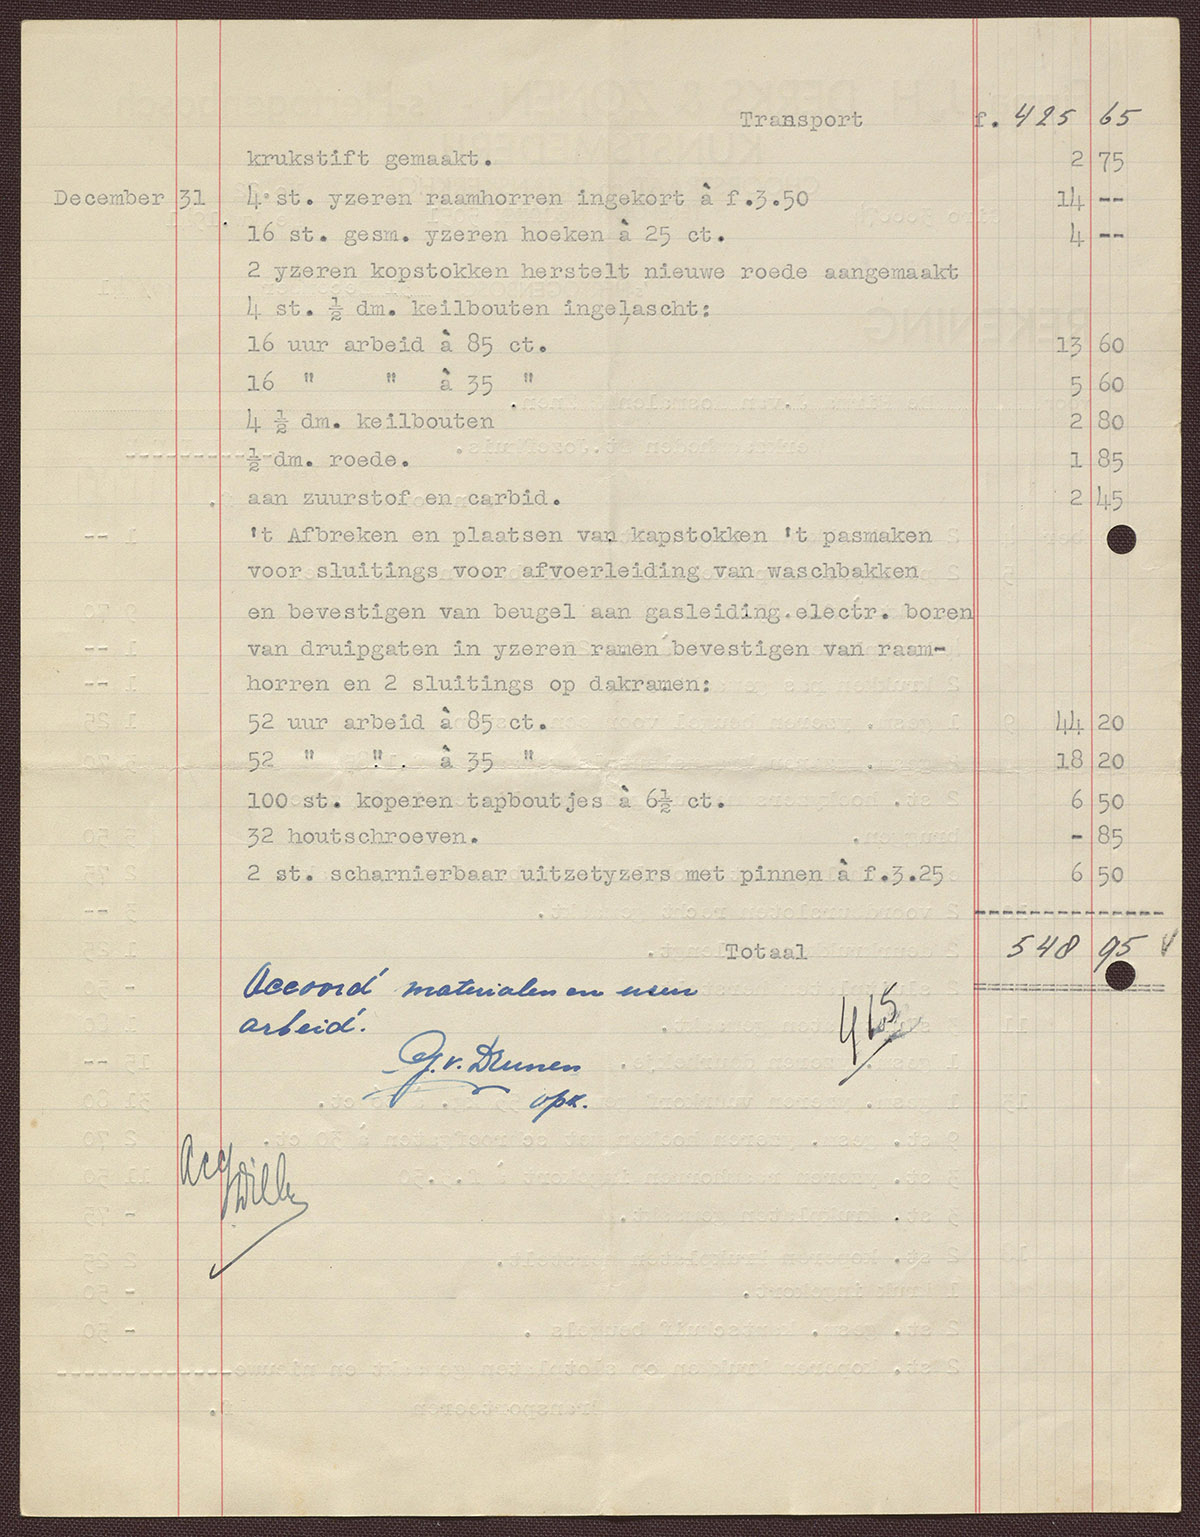 Transport f. 425 65
krukstift gemaakt. 2 75
December 31 4 st. yzeren raamhorren ingekort à f.3.50 14 --
16 st. gesm. yzeren hoeken à 25 ct. 4 --
2 yzeren kopstokken herstelt nieuwe roede aangemaakt
4 st. ½ dm. keilbouten ingelascht:
16 uur arbeid à 85 ct. 13 60
16 " " à 35 " 5 60
4 ½ dm. keilbouten 2 80
½ dm. roede. 1 85
aan zuurstof en carbid. 2 45
't Afbreken en plaatsen van kapstokken 't pasmaken
voor sluitings voor afvoerleiding van waschbakken
en bevestigen van beugel aan gasleiding.electr. boren
van druipgaten in yzeren ramen bevestigen van raam-
horren en 2 sluitings op dakramen:
52 uur arbeid à 85 ct. 44 20
52 " " à 35 " 18 20
100 st. koperen tapboutjes à 6½ ct. 6 50
32 houtschroeven. - 85
2 st. scharnierbaar uitzetyzers met pinnen à f.3.25 6 50
Totaal 548 95
Accoord materialen en uren
arbeid.
G. v. Drunen
opz.
465
Acc